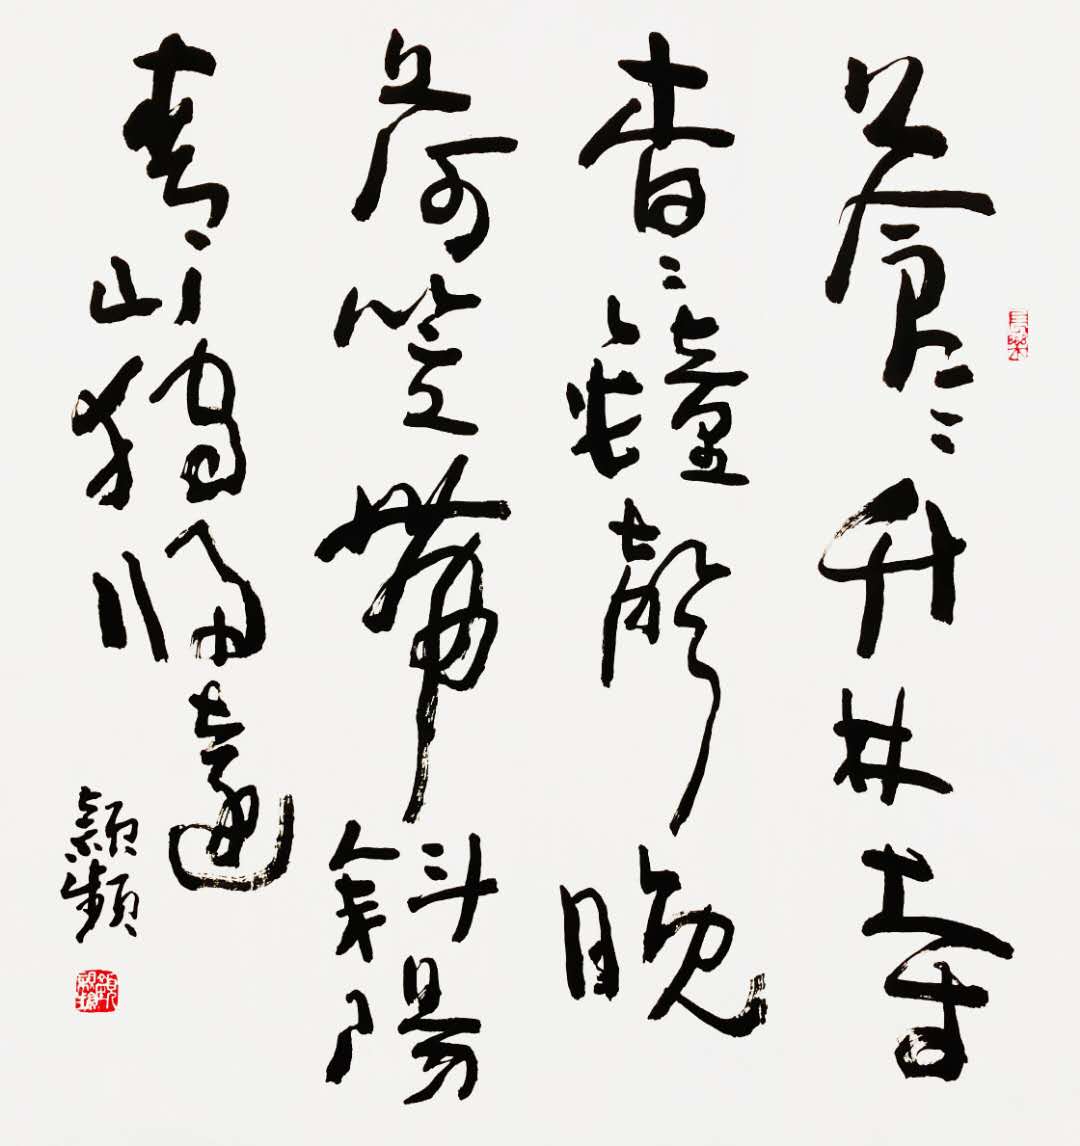 蒼〻竹林寺
杳〻鐘聲晚
荷笠帶斜陽
青山獨歸遠